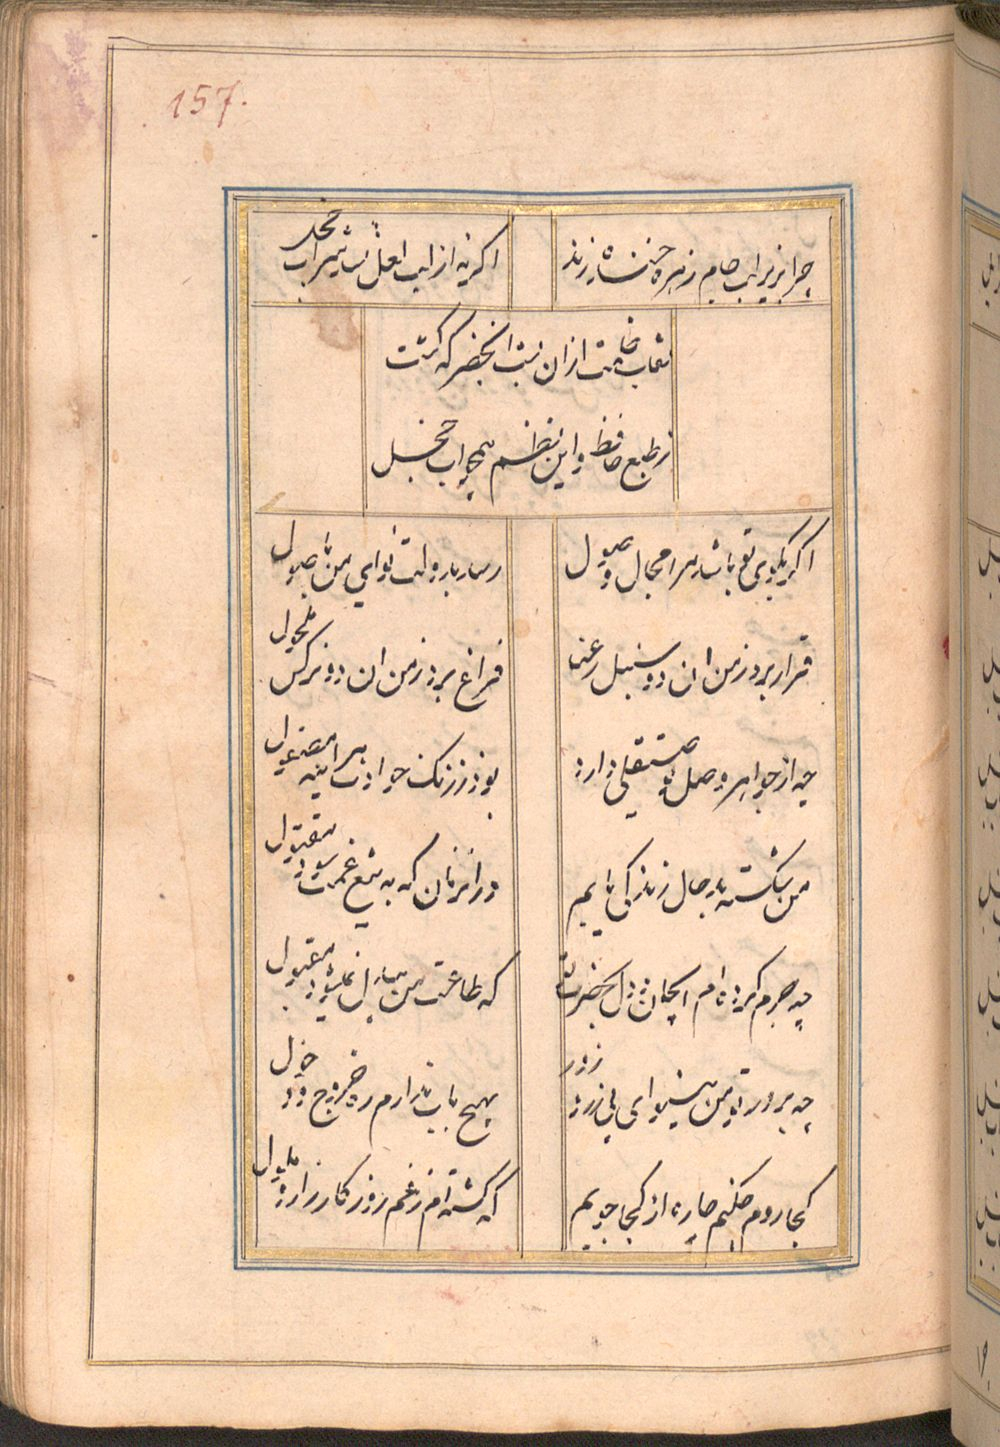 157.
چرا بزیر لب جام زهر خنده زند
اگر نه از لب لعل تو شد شراب خجل
نقاب ظلمت از آن بست آب خضر که گشت
ز طبع حافظ و این نظم همچو آب خجل
اگر بکوی تو باشد مرا مجال وصول
رسد بدولت نوای من باصول
قرار برد ز من ان دو سنبل رعنا
فراغ برد ز من ان دو نرکس مکحول
چو از جواهر وصل تو صیقلی دارد
بود ز زنک حوادث هر اینه مصقول
من شکسته بدحال زندکی یابم
در انزمان که به تیغ غمت شوم مقتول
چه جرم کرده ام ایجان و دل بحضرت تو
که طاعت من بیدل نمیشود مقبول
چو بر در تو من بینوای بی زر و زور
بهیچ باب ندارم ره خروج و دخول
کجا روم چکنم چاره از کجا جویم
که کشته ام ز غم روزکار زار و ملول